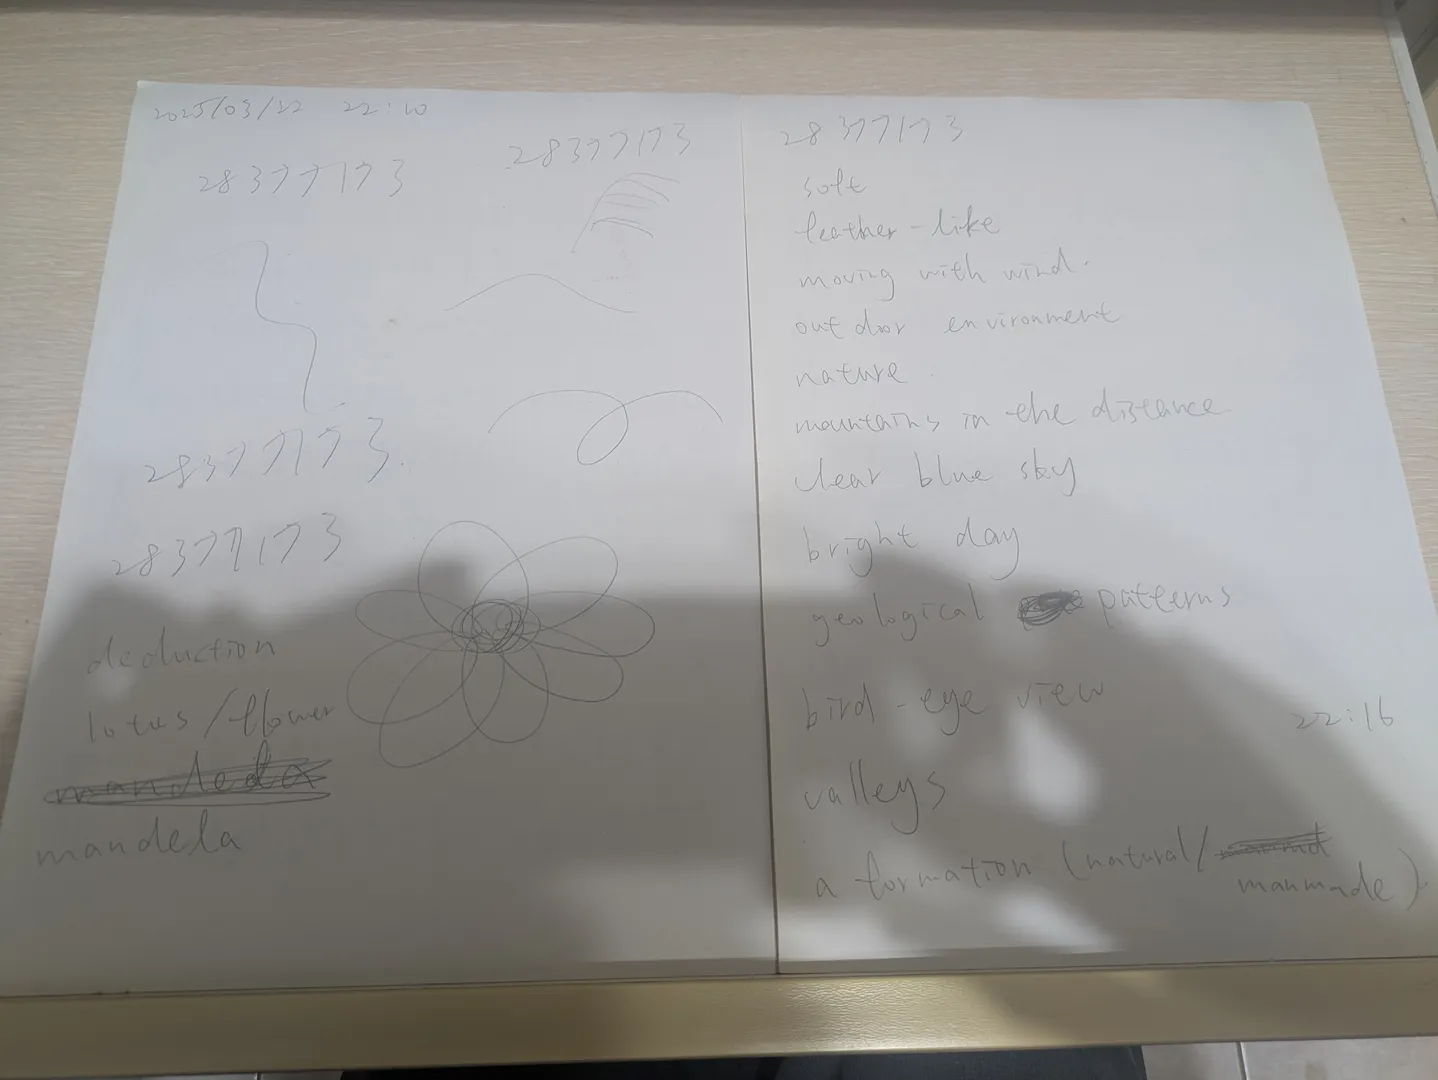 2025/03/22 22:10
28377173
28377173
28377173
28377173
deduction
lotus/flower
mandela
28377173
soft
feather-like
moving with wind.
outdoor environment
nature
mountains in the distance
clear blue sky
bright day
geological patterns
bird-eye view
22:16
valleys
a formation (natural/
manmade)